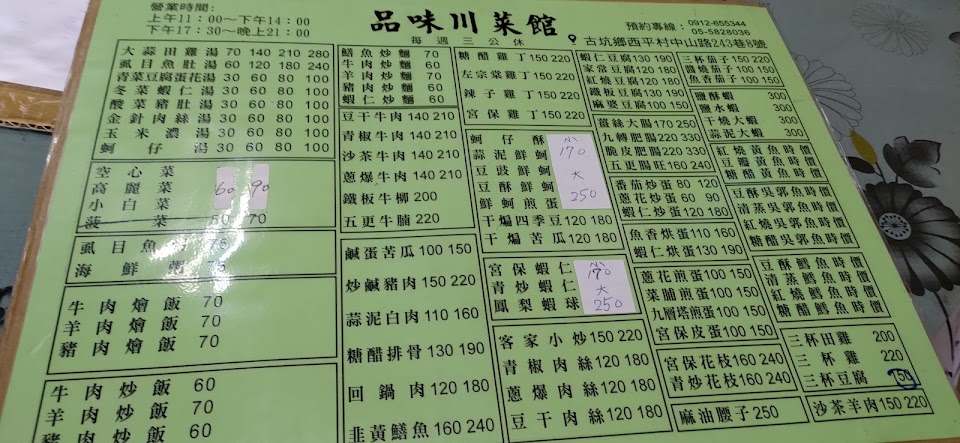 營業時間:
上午11:00~下午14:00
下午17:30~晚上21:00
品味川菜館
每週三公休
預約專線:0912-655344
05-5828036
古坑鄉西平村中山路243巷8號
大蒜田雞湯 70 140 210 280
虱目魚肚湯 60 120 180 240
青菜豆腐蛋花湯 30 60 80 100
冬菜蝦仁湯 30 60 80 100
酸菜豬肚湯 30 60 80 100
金針肉絲湯 30 60 80 100
玉米濃湯 30 60 80 100
蚵仔湯 30 60 80 100
空心菜
高麗菜 60 90
小白菜
菠菜 50 70
虱目魚 75
海鮮粥 75
牛肉燴飯 70
羊肉燴飯 70
豬肉燴飯 70
牛肉炒飯 60
羊肉炒飯 70
豬肉炒飯 60
鱔魚炒麵 70
牛肉炒麵 60
羊肉炒麵 70
豬肉炒麵 60
蝦仁炒麵 60
豆干牛肉 140 210
青椒牛肉 140 210
沙茶牛肉 140 210
蔥爆牛肉 140 210
鐵板牛柳 200
五更牛腩 220
鹹蛋苦瓜 100 150
炒鹹豬肉 150 220
蒜泥白肉 110 160
糖醋排骨 130 190
回鍋肉 120 180
韭黃鱔魚 160 240
糖醋雞丁 150 220
左宗棠雞丁 150 220
辣子雞丁 150 220
宮保雞丁 150 220
蚵仔酥 小
蒜泥鮮蚵 170
豆豉鮮蚵 大
豆酥鮮蚵 250
鮮蚵煎蛋
干煸四季豆 120 180
干煸苦瓜 120 180
宮保蝦仁 小 170
青炒蝦仁 大
鳳梨蝦球 250
客家小炒 150 220
青椒肉絲 120 180
蔥爆肉絲 120 180
豆干肉絲 120 180
蝦仁豆腐 130 190
家常豆腐 120 180
紅燒豆腐 120 180
鐵板豆腐 130 190
麻婆豆腐 100 150
薑絲大腸 170 250
九轉肥腸 220 330
脆皮肥腸 220 330
五更腸旺 160 240
番茄炒蛋 80 120
蔥花炒蛋 60 90
蝦仁炒蛋 120 180
魚香烘蛋 110 160
蝦仁烘蛋 130 190
蔥花煎蛋 100 150
菜脯煎蛋 100 150
九層塔煎蛋 100 150
宮保皮蛋 100 150
宮保花枝 160 240
青炒花枝 160 240
麻油腰子 250
三杯茄子 150 220
醬燒茄子 100 150
魚香茄子 100 150
鹽酥蝦 300
鹽水蝦 300
干燒大蝦 300
蒜泥大蝦 300
紅燒黃魚 時價
豆瓣黃魚 時價
糖醋黃魚 時價
豆酥吳郭魚 時價
清蒸吳郭魚 時價
紅燒吳郭魚 時價
糖醋吳郭魚 時價
豆酥鱈魚 時價
清蒸鱈魚 時價
紅燒鱈魚 時價
糖醋鱈魚 時價
三杯田雞 200
三杯雞 220
三杯豆腐 150
沙茶羊肉 150 220